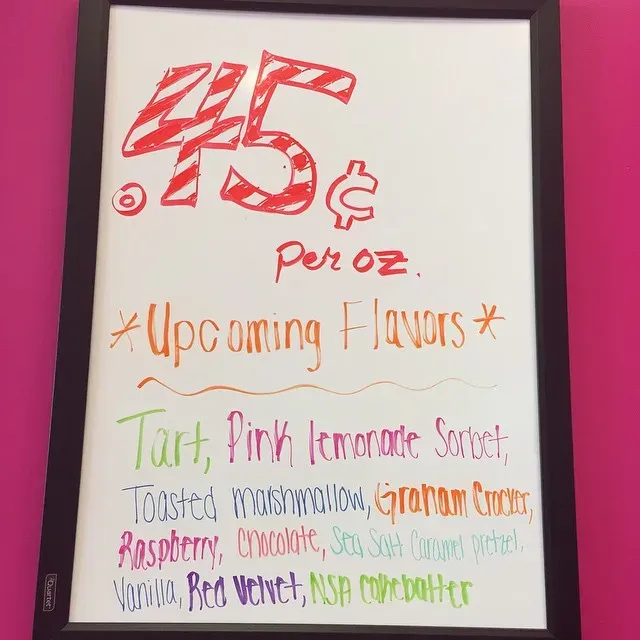 .45¢
per oz.
*Upcoming Flavors*
Tart, Pink lemonade Sorbet,
Toasted marshmallow, Graham Cracker,
Raspberry, Chocolate, Sea Salt Caramel pretzel,
Vanilla, Red Velvet, NSA cakebatter
Quartet